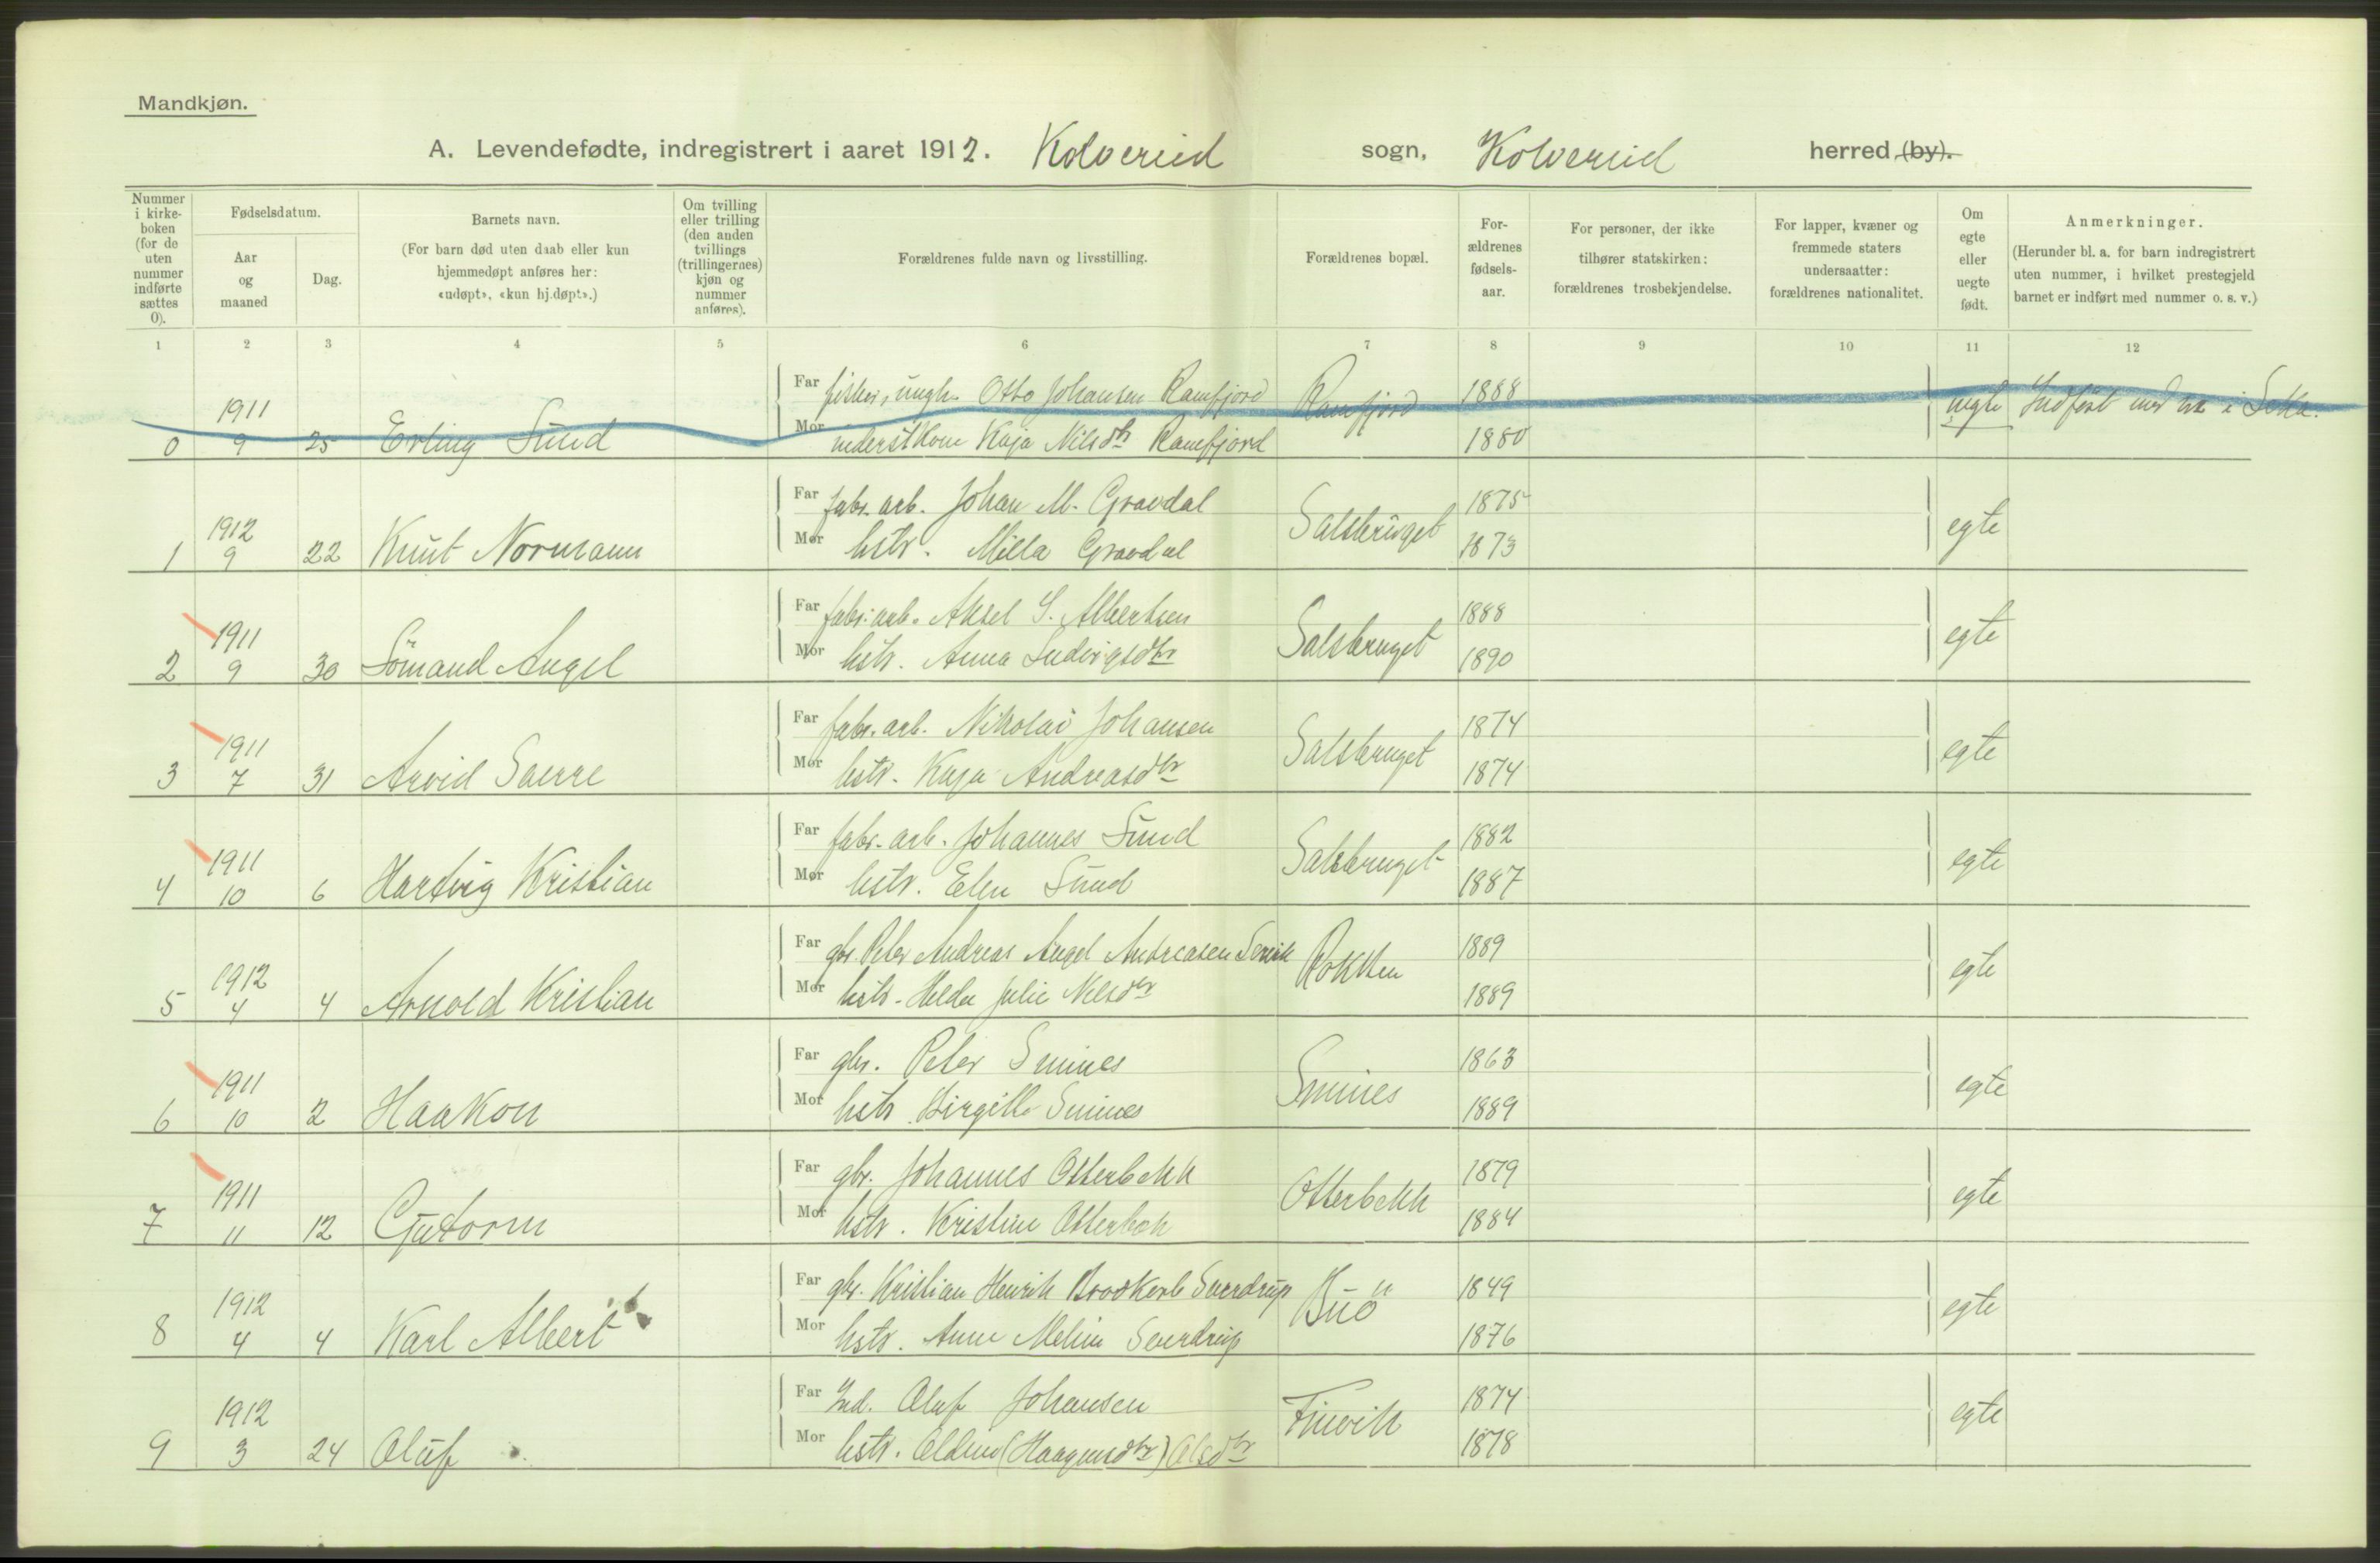 Mandkjøn.
A. Levendefødte, indregistrert i aaret 1912. Kolvereid sogn, Kolvereid herred (by).
Nummer i kirke-boken (for de uten nummer indførte sættes 0).
Fødselsdatum.
Aar og maaned
Dag.
Barnets navn.
(For barn død uten daab eller kun hjemmedøpt anføres her: «udøpt», «kun hj.døpt».)
Om tvilling eller trilling (den anden tvillings (trillingernes) kjøn og nummer anføres).
Forældrenes fulde navn og livsstilling.
Forældrenes bopæl.
For-ældrenes fødsels-aar.
For personer, der ikke tilhører statskirken: forældrenes trosbekjendelse.
For lapper, kvæner og fremmede staters undersaatter: forældrenes nationalitet.
Om egte eller uegte født.
Anmerkninger.
(Herunder bl. a. for barn indregistrert uten nummer, i hvilket prestegjeld barnet er indført med nummer o. s. v.)
1 2 3 4 5 6 7 8 9 10 11 12
Far fisker, ungk. Otto Johansen Ramfjord Ramfjord 1888 uegte Indført med nr. i
0 1911 9 25 Erling Sund Mor Kaja Nilsdtr Ramfjord 1880
Far fabr. arb. Johan M. Gravdal Salsbruget 1875 egte
1 1912 9 22 Knut Normann Mor hstr. Milla Gravdal 1873
Far fabr. arb. Aksel S. Albertsen Salsbruget 1888 egte
2 1911 9 30 Sömand Angel Mor hstr. Anna Ludvigsdtr 1890
Far fabr. arb. Nikolai Johansen Salsbruget 1874 egte
3 1911 7 31 Arvid Sverre Mor hstr. Kaja Andreasdtr 1874
Far fabr. arb. Johannes Sund Salsbruget 1882 egte
4 1911 10 6 Hartvig Kristian Mor hstr. Elen Sund 1887
Far gbr. Peter Andreas Angel Andreasen 1889 egte
5 1912 4 4 Arnold Kristian Mor hstr. Hilda Julie Nilsdtr 1889
Far gbr. Peter Smines Smines 1863 egte
6 1911 10 2 Haakon Mor hstr. Birgitte Smines 1889
Far gbr. Johannes Otterbekk Otterbekk 1879 egte
7 1911 11 12 Gutorm Mor hstr. Kristine Otterbek 1884
Far gbr. Kristian Henrik Sverdrup 1849 egte
8 1912 4 4 Karl Albert Mor hstr. Anne Sverdrup 1876
Far Ind. Oluf Johansen Finvik 1874 egte
9 1912 3 24 Oluf Mor hstr. (Haagensdtr) Olsdtr 1878